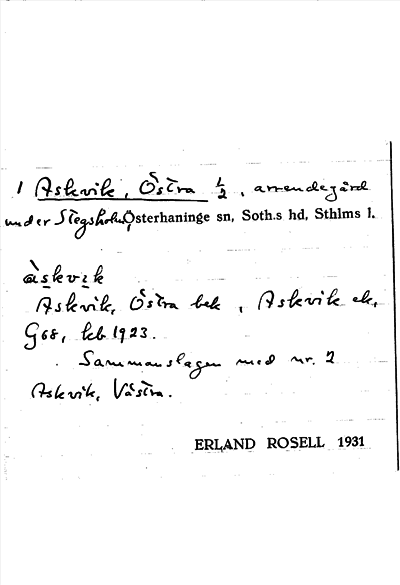 1 Askvik, Östra 1/2, arrendegård
under Stegsholm, Österhaninge sn, Soth.s hd, Sthlms l.
àskvik
Askvik, Östra bek, Askvik ek,
G68, kb 1923.
Sammanslagen med nr. 2
Askvik, Västra.
ERLAND ROSELL 1931